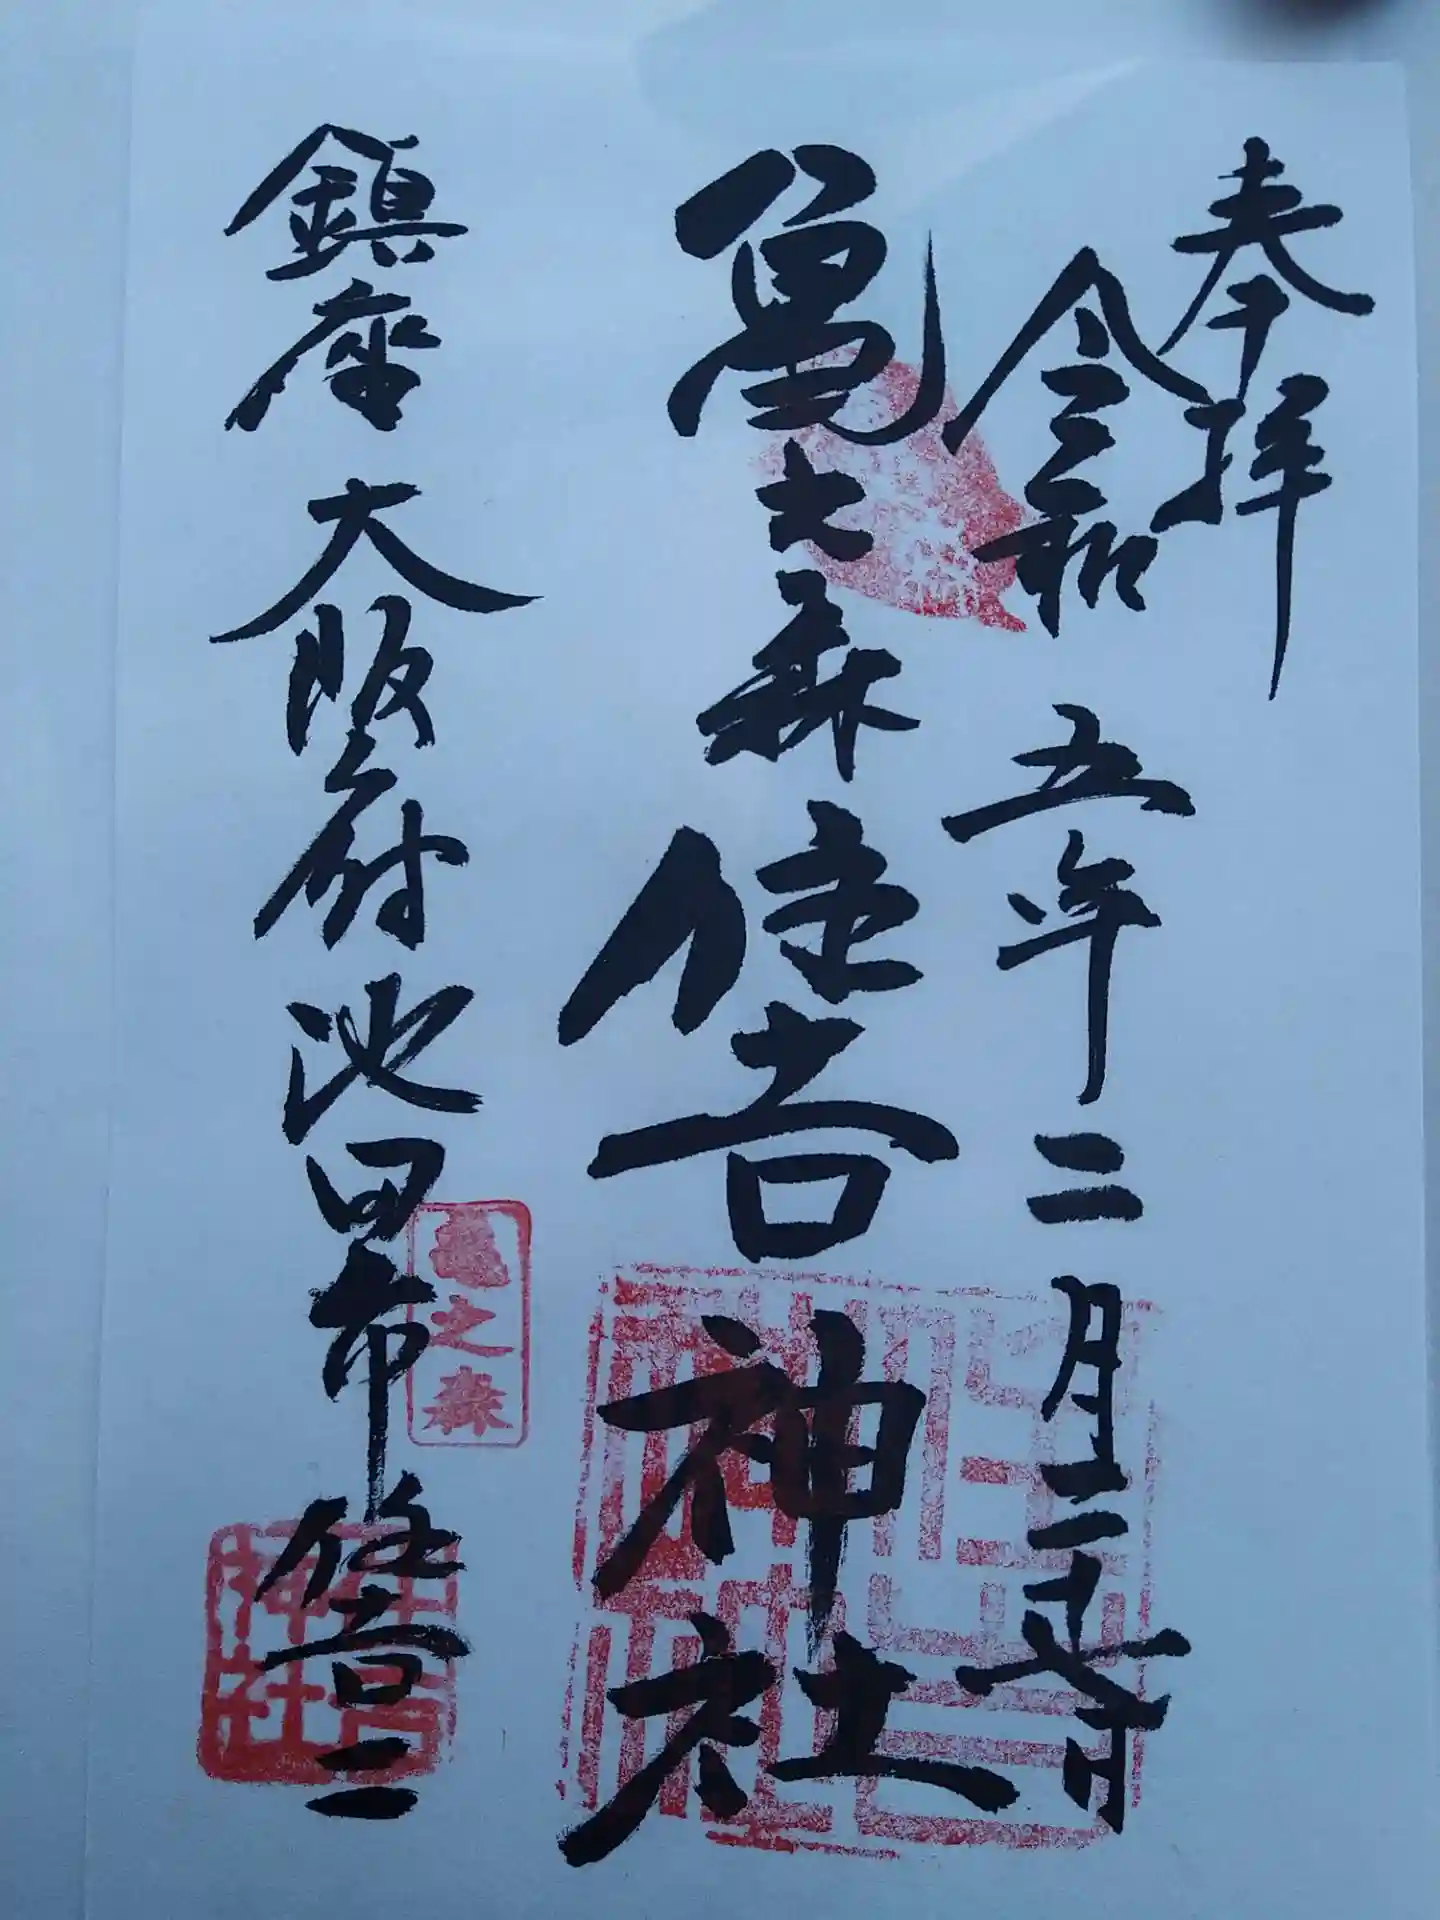 奉拝
令和五年二月二十七日
亀之森住吉神社
亀之森
鎮座 大阪府池田市住吉二
神社